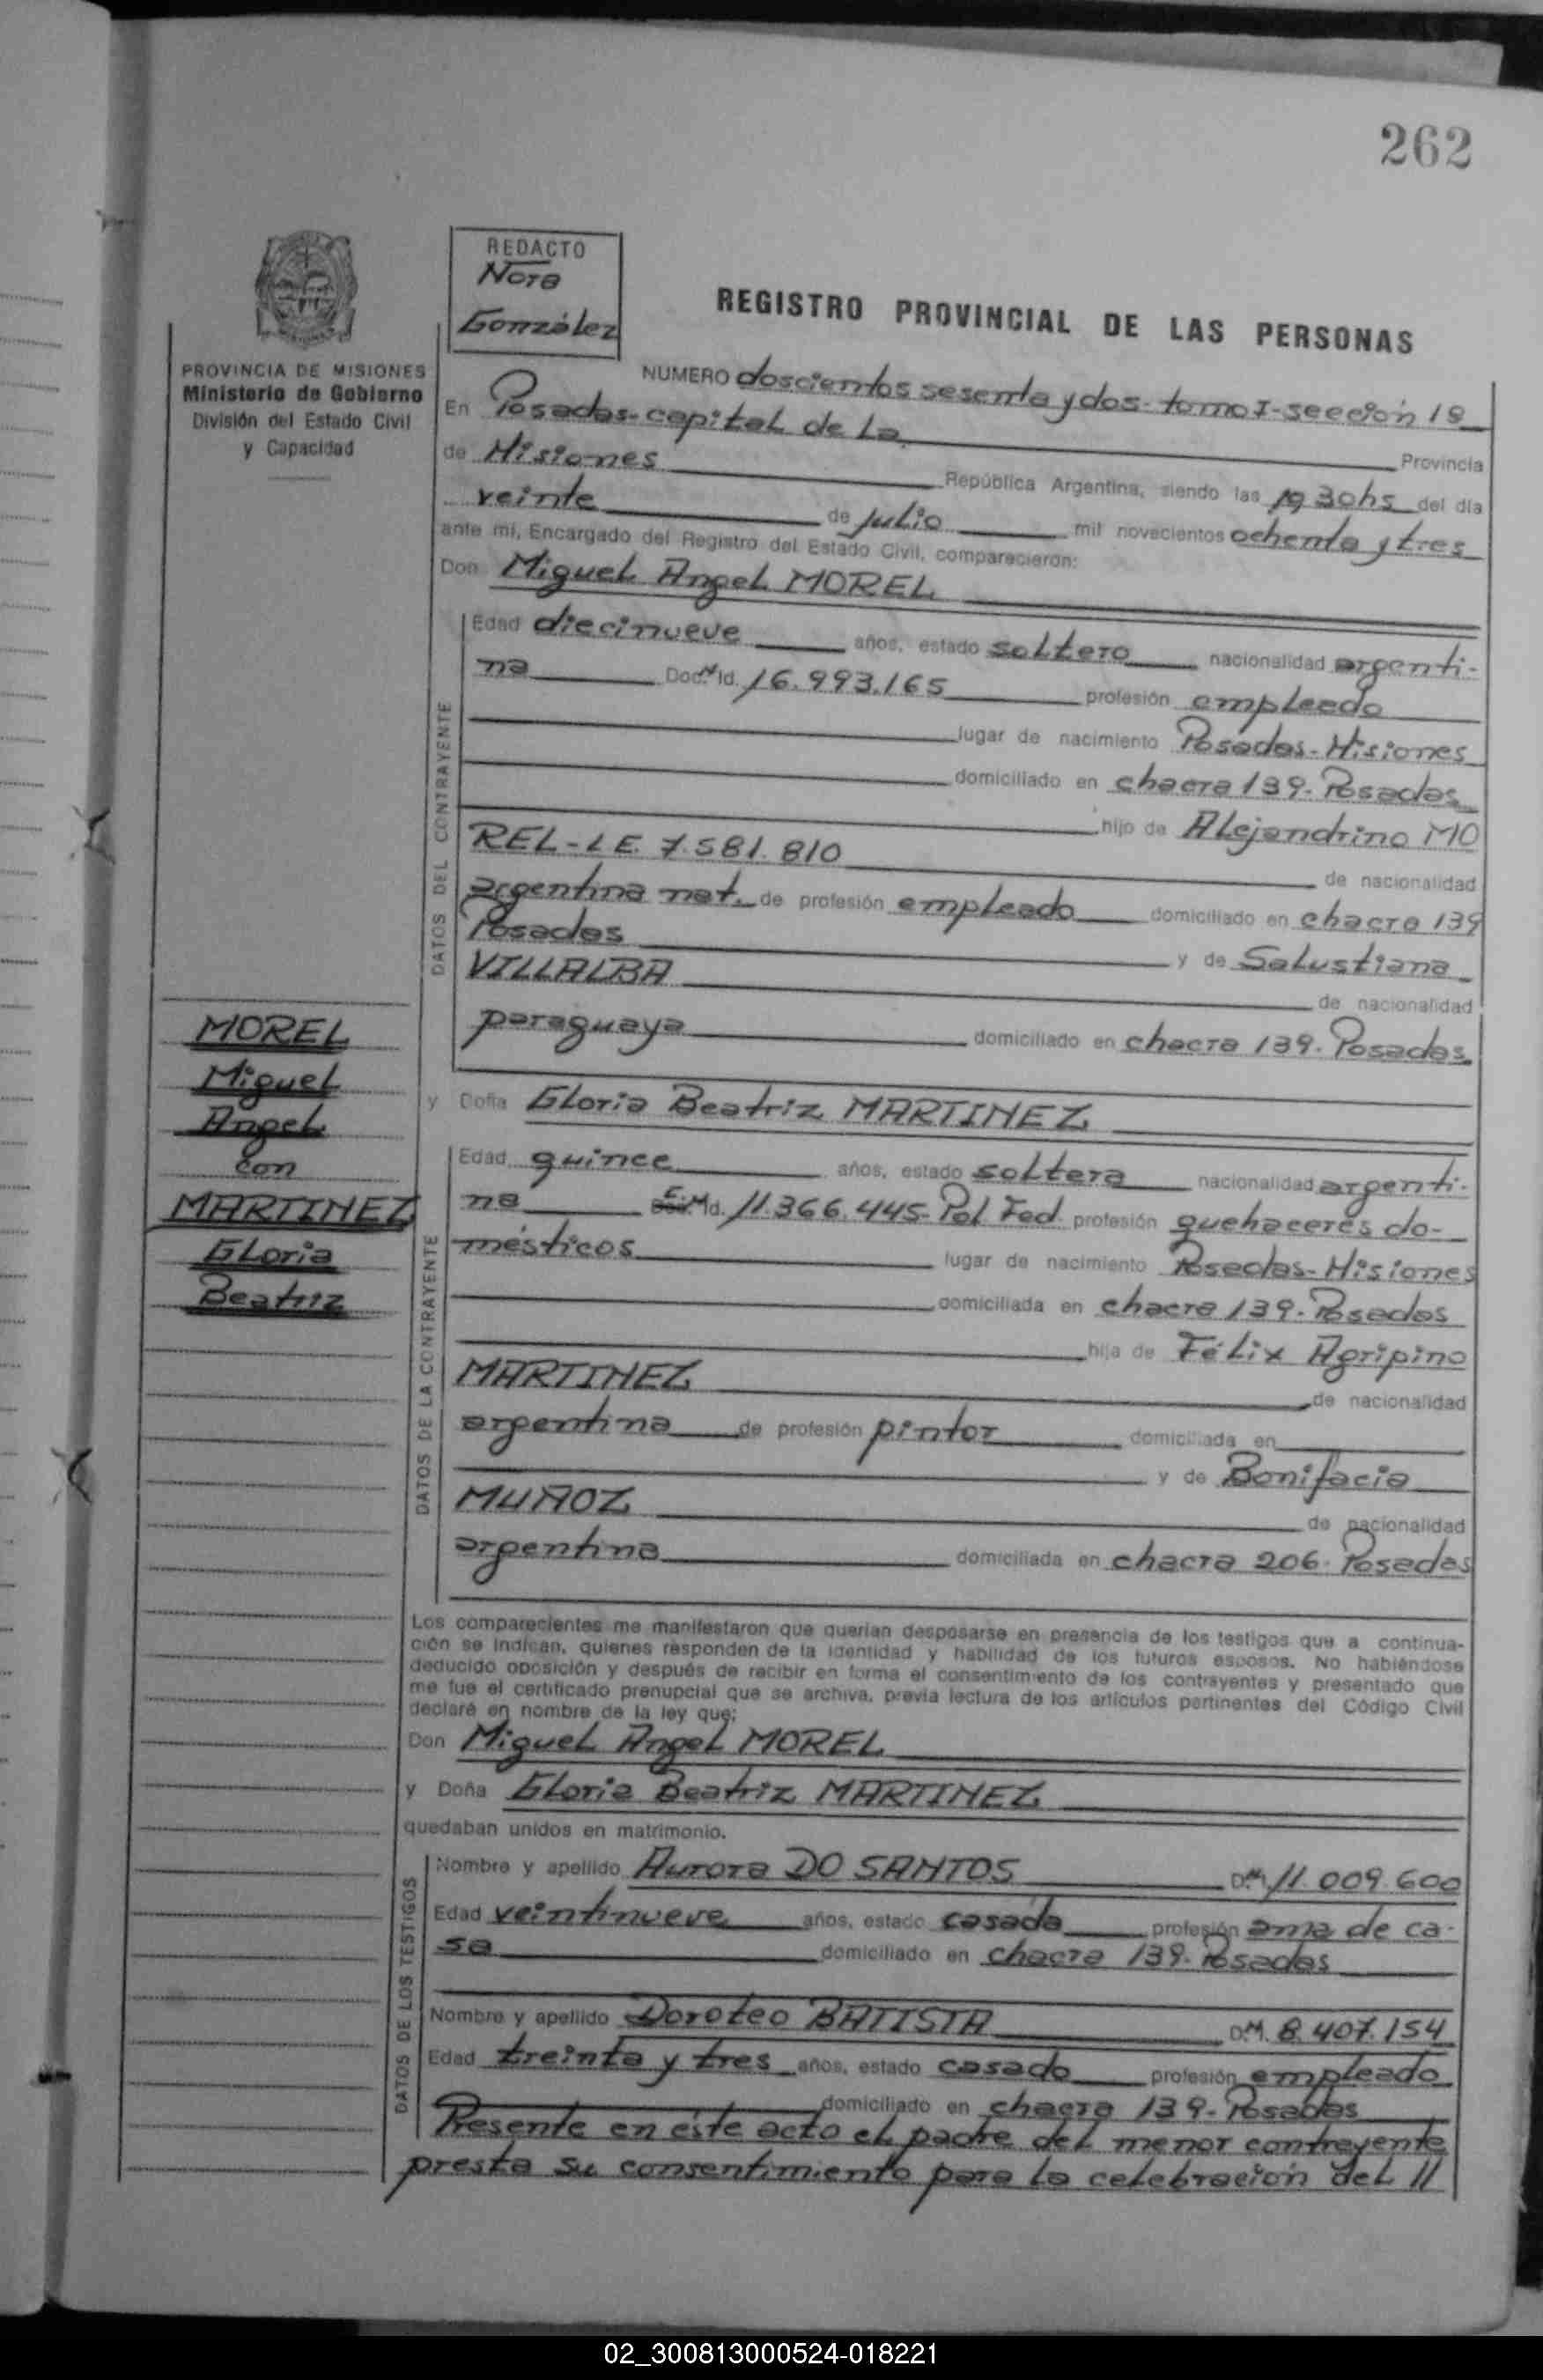 262
REDACTO
Nora
González
REGISTRO PROVINCIAL DE LAS PERSONAS
PROVINCIA DE MISIONES
Ministerio de Gobierno
División del Estado Civil
y Capacidad
NUMERO doscientos sesenta y dos - tomo I - sección 1ª
En Posadas - capital de La Provincia
de Misiones República Argentina, siendo las 19 30hs del día
veinte de Julio mil novecientos ochenta y tres
ante mí, Encargado del Registro del Estado Civil, comparecieron:
Don Miguel Angel MOREL
DATOS DEL CONTRAYENTE
Edad diecinueve años, estado soltero nacionalidad argenti-
na Doc. Id. 16.993.165 profesión empleado
lugar de nacimiento Posadas - Misiones
domiciliado en chacra 139 - Posadas
hijo de Alejandrino MO
REL - L E. 7.581.810 de nacionalidad
argentina nat. de profesión empleado domiciliado en chacra 139
Posadas y de Salustiana
VILLALBA de nacionalidad
paraguaya domiciliado en chacra 139. Posadas
MOREL
Miguel
Angel
con
MARTINEZ
Gloria
Beatriz
y Doña Gloria Beatriz MARTINEZ
DATOS DE LA CONTRAYENTE
Edad quince años, estado soltera nacionalidad argenti-
na Id. 11.366.445 - Pol. Fed. profesión quehaceres do-
mésticos lugar de nacimiento Posadas - Misiones
domiciliada en chacra 139 - Posadas
hija de Félix Agripino
MARTINEZ de nacionalidad
argentina de profesión pintor domiciliada en
y de Bonifacia
MUÑOZ de nacionalidad
argentina domiciliada en chacra 206 - Posadas
Los comparecientes me manifestaron que querían desposarse en presencia de los testigos que a continua-
ción se indican, quienes responden de la identidad y habilidad de los futuros esposos. No habiéndose
deducido oposición y después de recibir en forma el consentimiento de los contrayentes y presentado que
me fue el certificado prenupcial que se archiva, previa lectura de los artículos pertinentes del Código Civil
declaré en nombre de la ley que:
Don Miguel Angel MOREL
y Doña Gloria Beatriz MARTINEZ
quedaban unidos en matrimonio.
DATOS DE LOS TESTIGOS
Nombre y apellido Aurora DO SANTOS D.M. 11.009.600
Edad veintinueve años, estado casada profesión ama de ca-
sa domiciliado en chacra 139 - Posadas
Nombre y apellido Doroteo BATISTA D.M. 8.407.154
Edad treinta y tres años, estado casado profesión empleado
domiciliado en chacra 139 - Posadas
Presente en éste acto el padre del menor contrayente
presta su consentimiento para la celebración del //
02_300813000524-018221